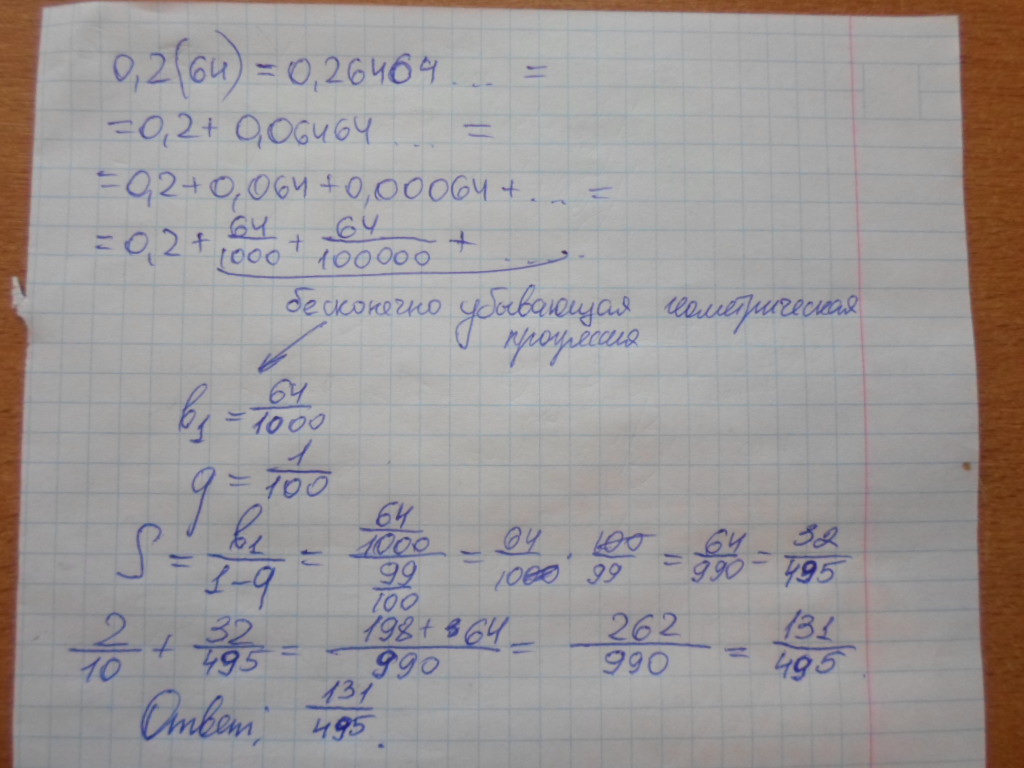 0,2(64) = 0,26464 ... =
= 0,2 + 0,06464 ... =
= 0,2 + 0,064 + 0,00064 + ... =
= 0,2 + 64/1000 + 64/100000 + ......
бесконечно убывающая геометрическая
прогрессия
b₁ = 64/1000
q = 1/100
S = b₁/(1-q) = (64/1000)/(99/100) = 64/1000 · 100/99 = 64/990 = 32/495
2/10 + 32/495 = (198 + 64)/990 = 262/990 = 131/495
Ответ: 131/495.